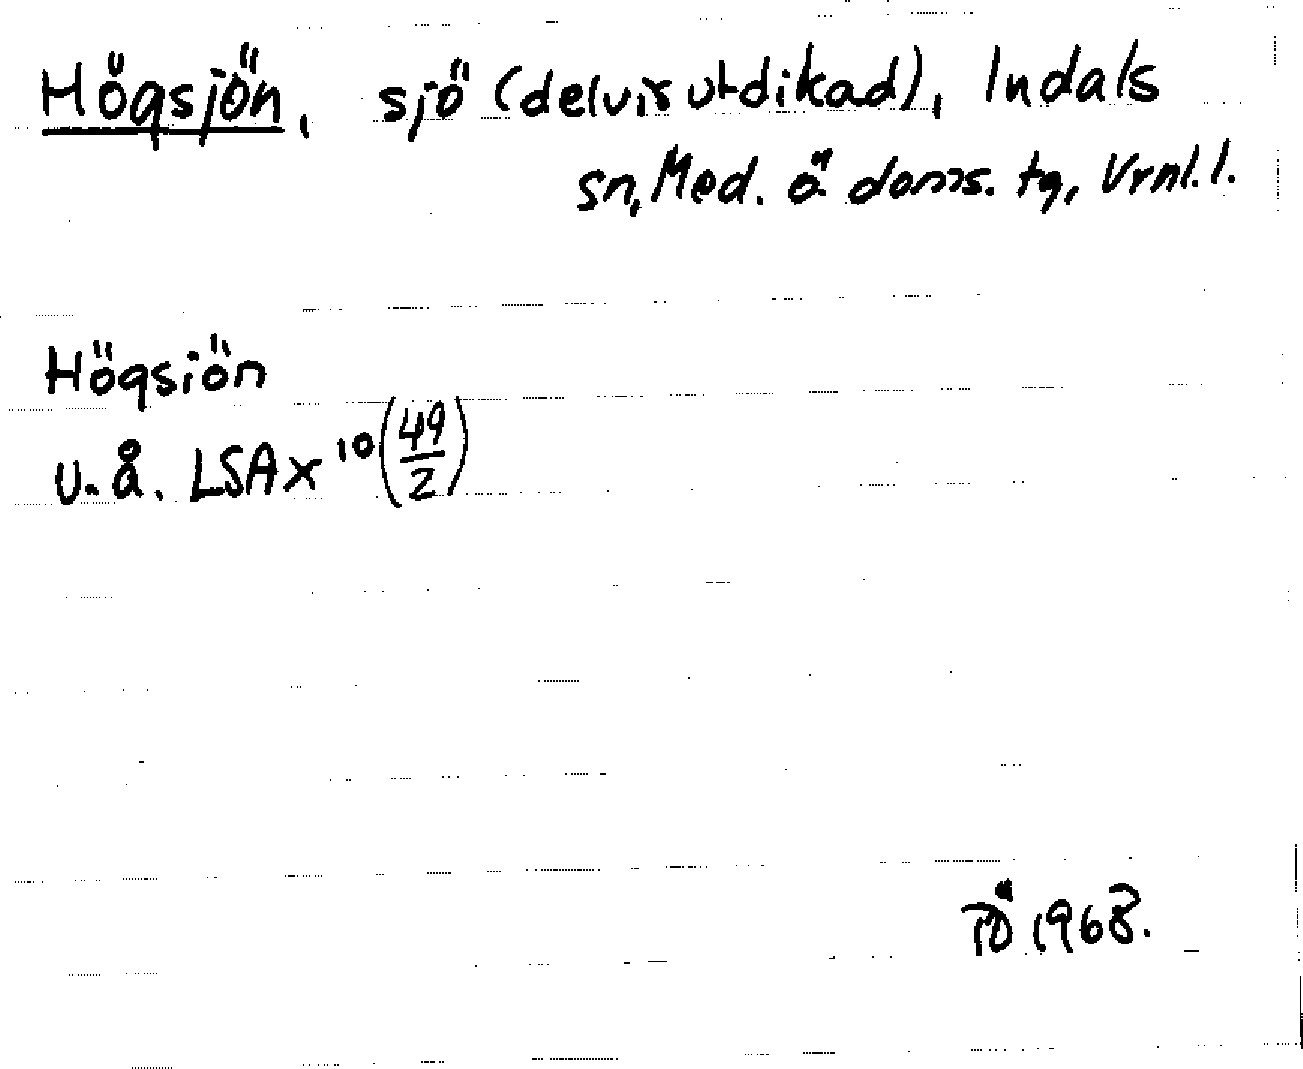 Högsjön, sjö (delvis utdikad), Indals
sn, Med. ö. doms. tg, Vrnl. l.
Högsiön
u. å. LSA X 10 (49/2)
PÖ 1968.